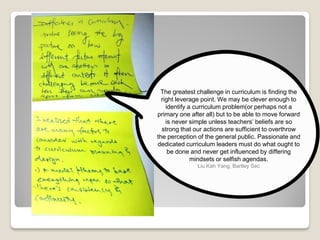 Difficulties in curriculum
seeing the big
picture on how
different factors interact
with one another in
different contexts is often
challenging because each
I realised that there
are many factors to
consider with regards
to curriculum planning &
design.
everything upon so that
there's consistency &
continuity.
The greatest challenge in curriculum is finding the
right leverage point. We may be clever enough to
identify a curriculum problem(or perhaps not a
primary one after all) but to be able to move forward
is never simple unless teachers' beliefs are so
strong that our actions are sufficient to overthrow
the perception of the general public. Passionate and
dedicated curriculum leaders must do what ought to
be done and never get influenced by differing
mindsets or selfish agendas.
Liu Kah Yang, Bartley Sec